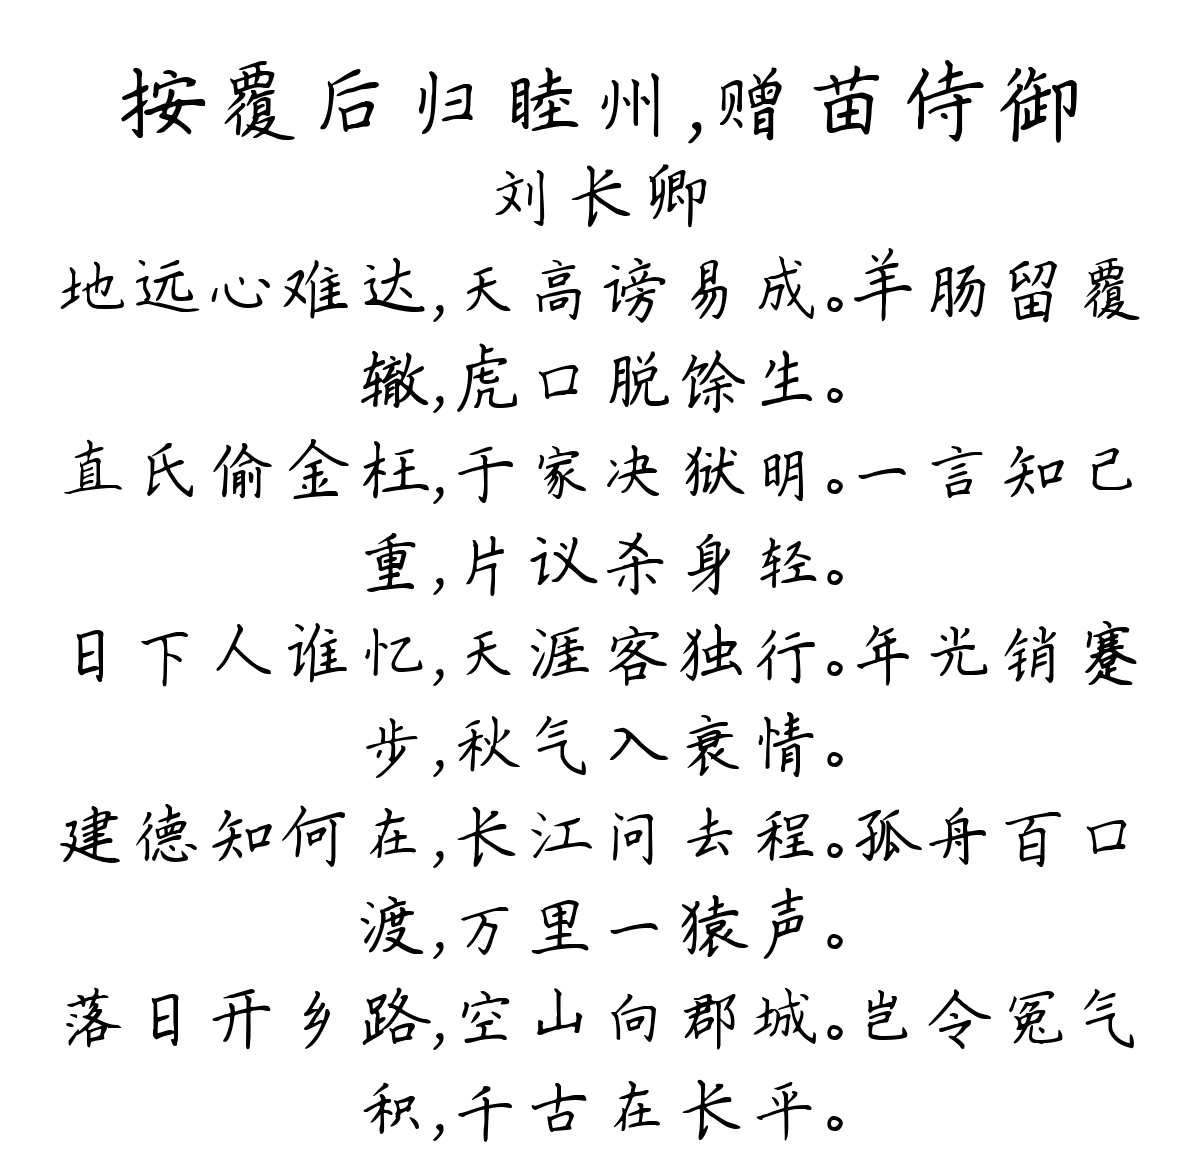 按覆后归睦州,赠苗侍御
刘长卿
地远心难达,天高谤易成。羊肠留覆
辙,虎口脱馀生。
直氏偷金枉,于家决狱明。一言知己
重,片议杀身轻。
日下人谁忆,天涯客独行。年光销蹇
步,秋气入衰情。
建德知何在,长江问去程。孤舟百口
渡,万里一猿声。
落日开乡路,空山向郡城。岂令冤气
积,千古在长平。